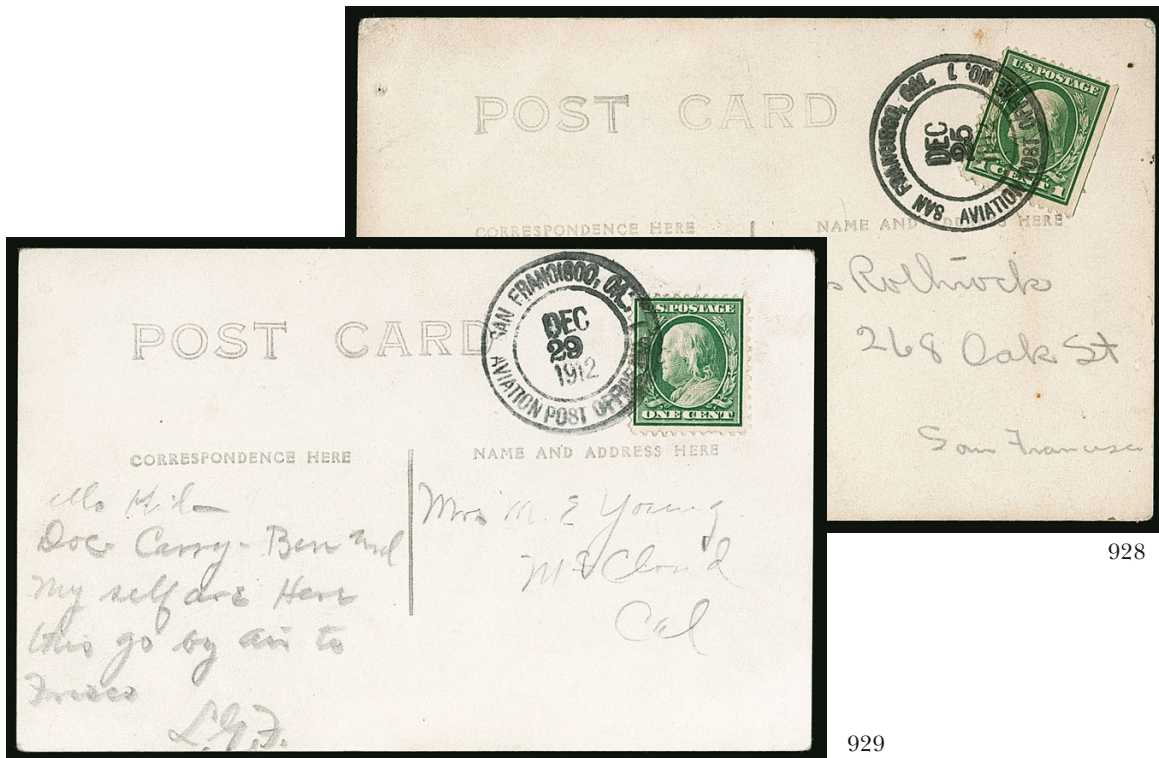 POST CARD
SAN FRANCISCO, CAL.
AVIATION POST OFFICE NO. 1
DEC
25
U.S. POSTAGE
1 CENT 1
CORRESPONDENCE HERE
NAME AND ADDRESS HERE
Rothrock
268 Oak St
San Francisco
928
POST CARD
SAN FRANCISCO, CAL.
AVIATION POST OFFICE
DEC
29
1912
U.S. POSTAGE
ONE CENT
CORRESPONDENCE HERE
NAME AND ADDRESS HERE
Doc Carry - Ben and
My self are Here
this go by air to
Frisco
L.G.F.
Mrs M. E Young
McCloud
Cal
929